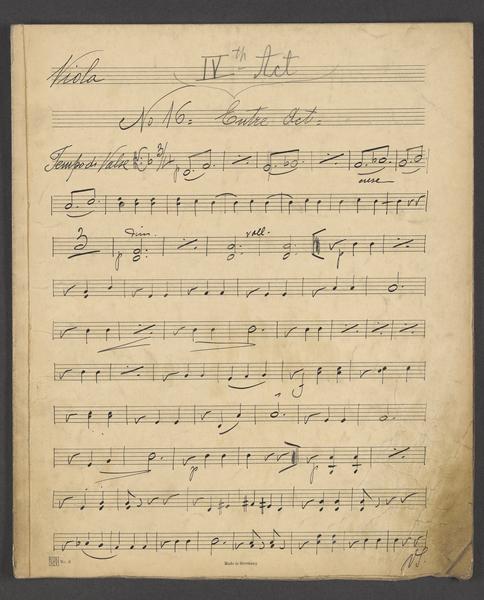 Viola
IVth Act
No 16: Entre Act:
Tempo di Valse
p
3
dim.
rall.
p
p
p
p
V.S.
No. 3
Made in Germany